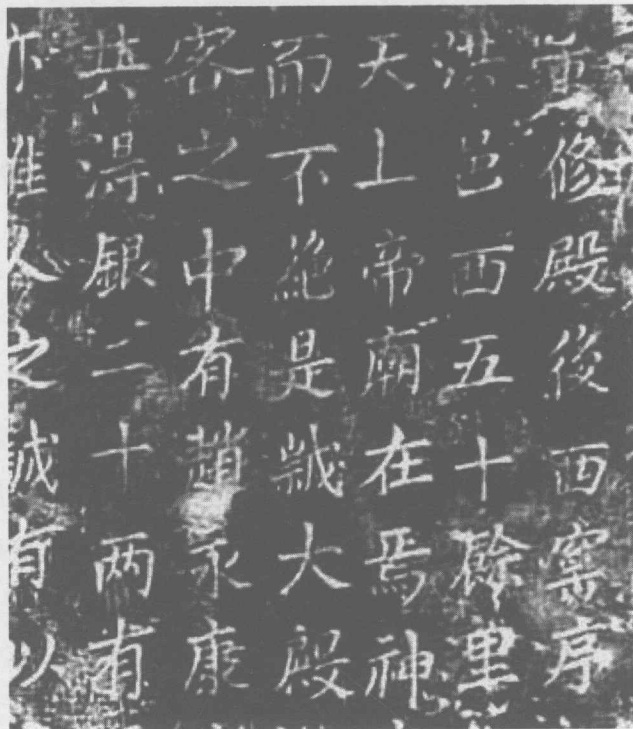 重修殿後西窯序
洪邑西五十餘里
天上帝廟在焉神
而不絶是歲大殿
客之中有趙永康
共得銀二十两有
惟人之誠有以